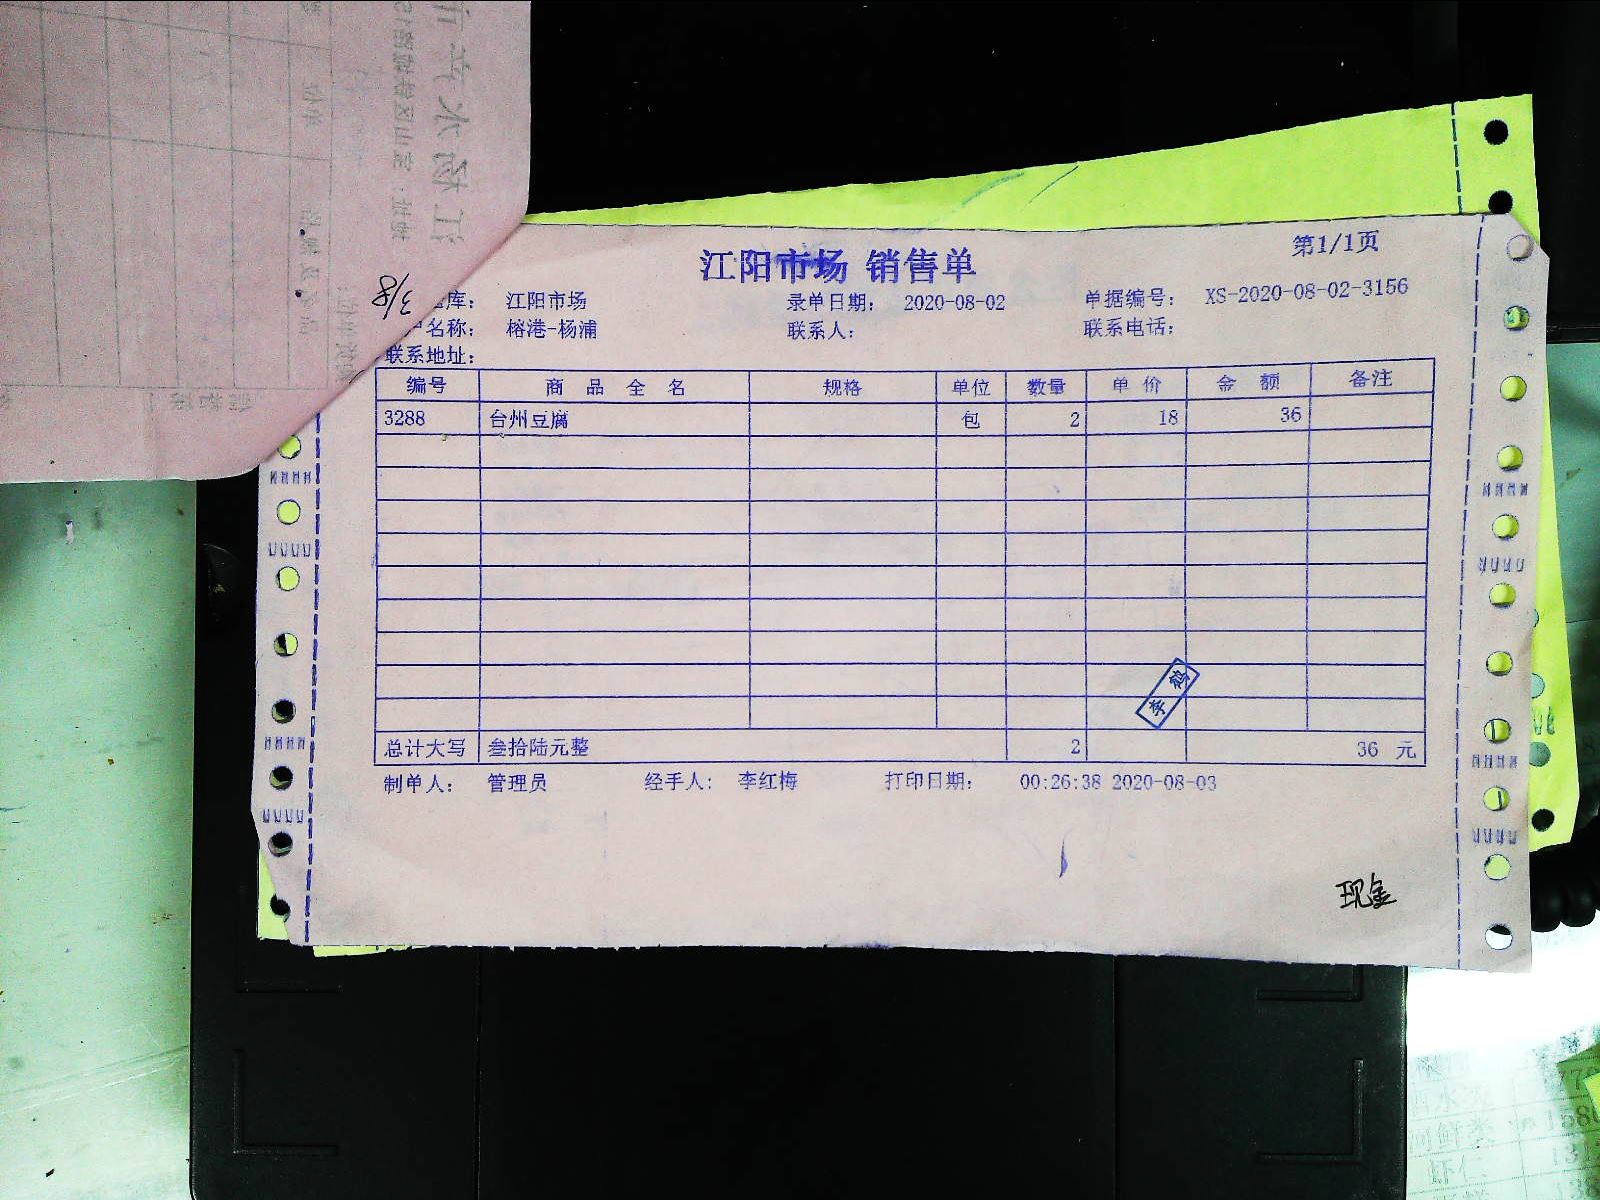 江阳市场 销售单
第1/1页
库： 江阳市场 录单日期： 2020-08-02 单据编号： XS-2020-08-02-3156
户名称： 榕港-杨浦 联系人： 联系电话：
联系地址：
3/8
编号 商品全名 规格 单位 数量 单价 金额 备注
3288 台州豆腐 包 2 18 36
李鹤
总计大写 叁拾陆元整 2 36 元
制单人： 管理员 经手人： 李红梅 打印日期： 00:26:38 2020-08-03
现金
虾仁